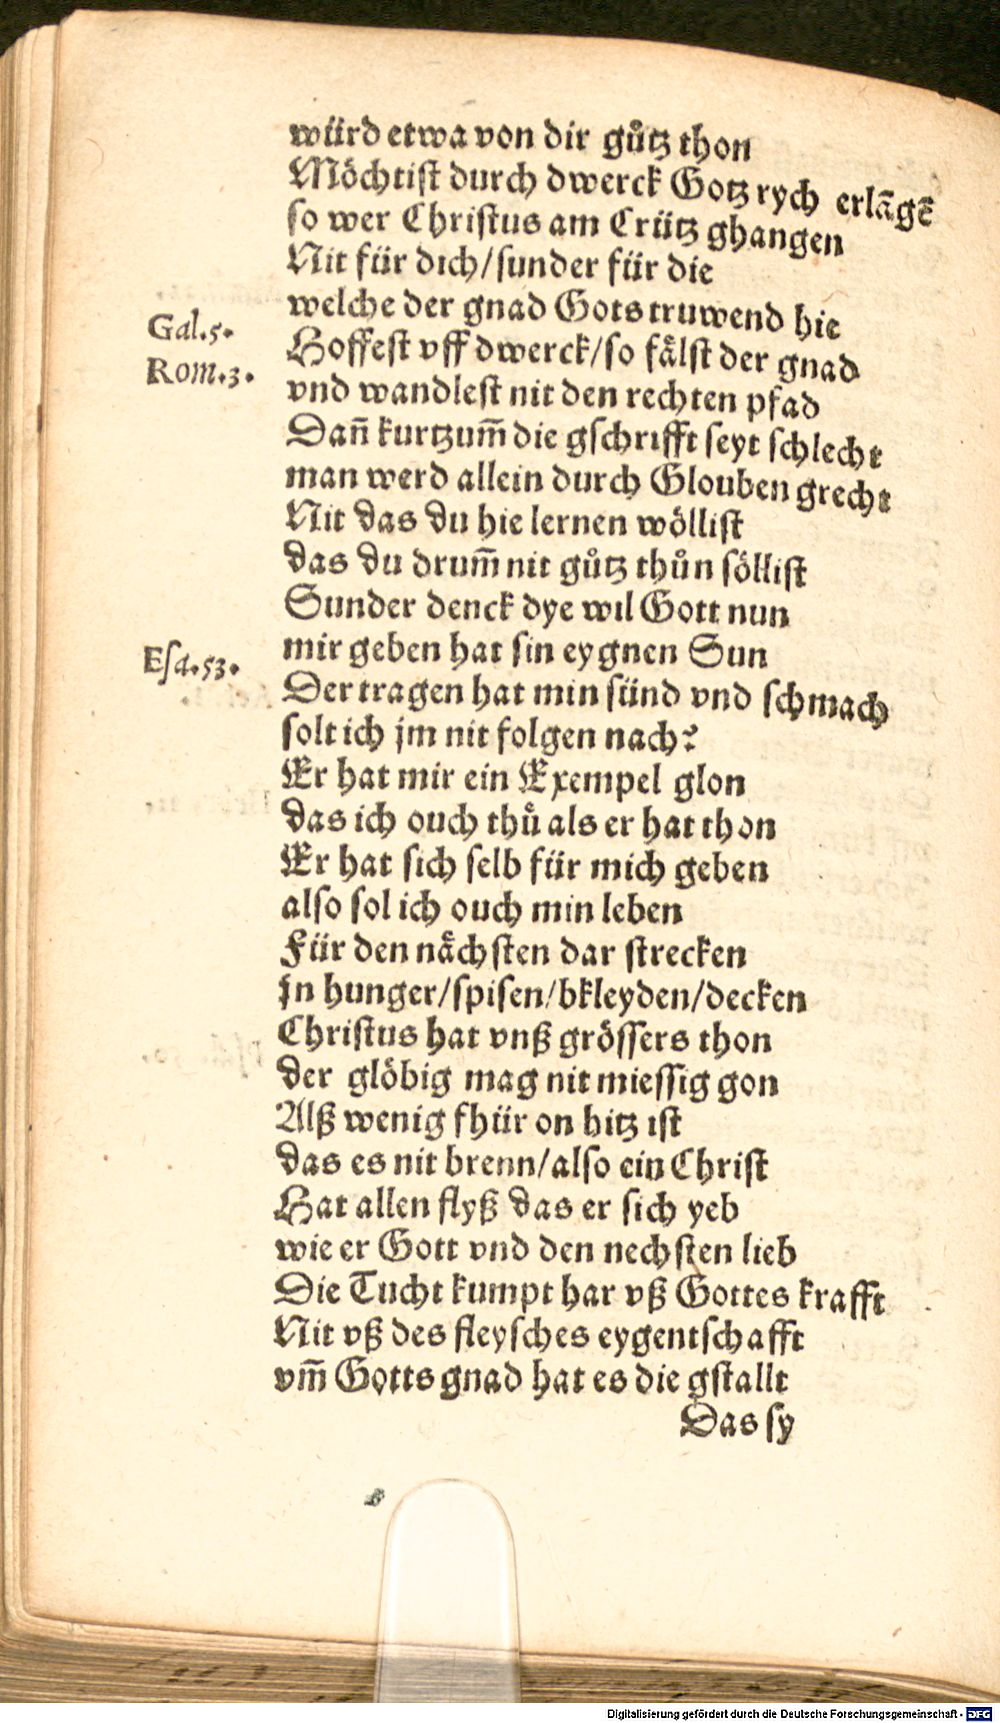 würd etwa von dir gůtz thon
Möchtist durch dwerck Gotz rych erlāgē
so wer Christus am Crütz ghangen
Nit für dich/sunder für die
welche der gnad Gots truwend hie
Gal.5.
Hoffest vff dwerck/so fålst der gnad
Rom.3.
vnd wandlest nit den rechten pfad
Dañ kurtzum̃ die gschrifft seyt schlecht
man werd allein durch Glouben grecht
Nit das du hie lernen wöllist
das du drum̃ nit gůtz thůn söllist
Sunder denck dye wil Gott nun
Esa.53.
mir geben hat sin eygnen Sun
Der tragen hat min sünd vnd schmach
solt ich jm nit folgen nach?
Er hat mir ein Exempel glon
das ich ouch thů als er hat thon
Er hat sich selb für mich geben
also sol ich ouch min leben
Für den nåchsten dar strecken
jn hunger/spisen/bkleyden/decken
Christus hat vnß grössers thon
der glöbig mag nit miessig gon
Alß wenig fhür on hitz ist
das es nit brenn/also ein Christ
Hat allen flyß das er sich yeb
wie er Gott vnd den nechsten lieb
Die Tucht kumpt har vß Gottes krafft
Nit vß des fleysches eygentschafft
vm̃ Gotts gnad hat es die gstallt
Das sy
Digitalisierung gefördert durch die Deutsche Forschungsgemeinschaft - DFG